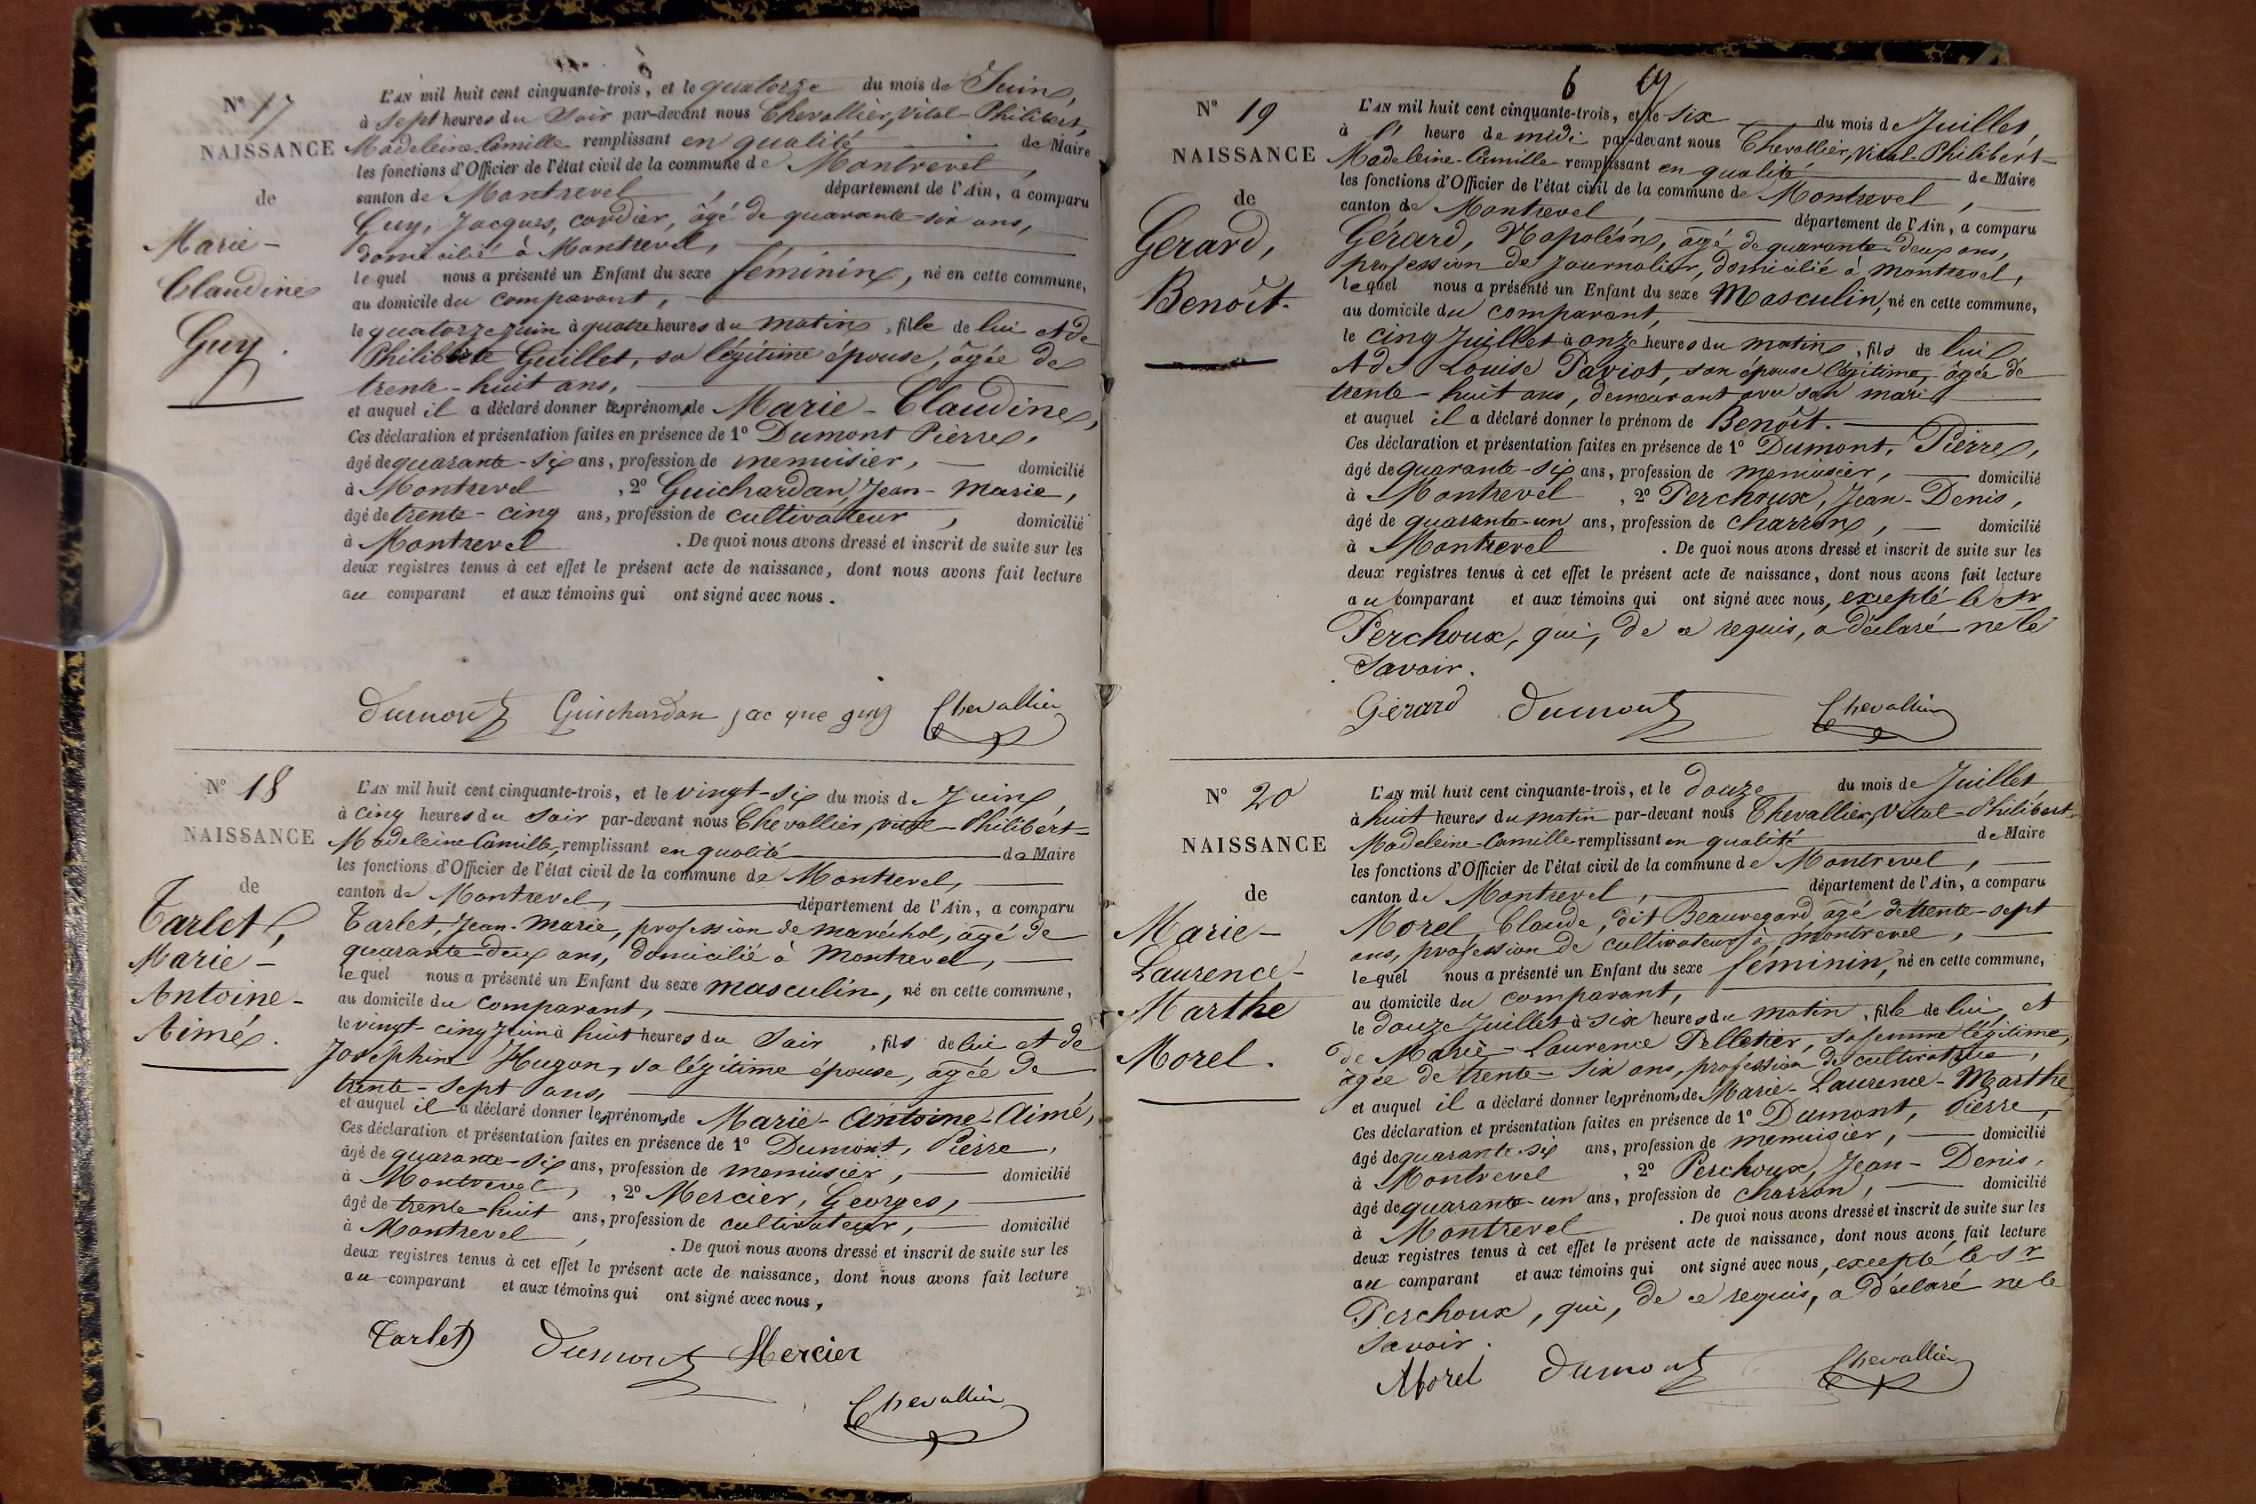 N° 17
NAISSANCE
de
Marie-
Claudine
Guy.
L'AN mil huit cent cinquante-trois, et le quatorze du mois de Juin,
à sept heures du Soir par-devant nous Chevallier, Vital-Philibert,
Madeleine Camille remplissant en qualité de Maire
les fonctions d'Officier de l'état civil de la commune de Montrevel,
canton de Montrevel, département de l'Ain, a comparu
Guy, Jacques, cordier, âgé de quarante-six ans,
domicilié à Montrevel,
lequel nous a présenté un Enfant du sexe féminin, né en cette commune,
au domicile du comparant,
le quatorze juin à quatre heures du matin, fille de lui et de
Philiberte Guillet, sa légitime épouse, âgée de
trente-huit ans,
et auquel il a déclaré donner les prénoms de Marie-Claudine,
Ces déclaration et présentation faites en présence de 1° Dumont Pierre,
âgé de quarante-six ans, profession de menuisier, domicilié
à Montrevel, 2° Guichardan, Jean-Marie,
âgé de trente-cinq ans, profession de cultivateur, domicilié
à Montrevel. De quoi nous avons dressé et inscrit de suite sur les
deux registres tenus à cet effet le présent acte de naissance, dont nous avons fait lecture
au comparant et aux témoins qui ont signé avec nous.
Dumont Guichardan jacque guy Chevallier
N° 18
NAISSANCE
de
Tarlet,
Marie-
Antoine-
Aimé.
L'AN mil huit cent cinquante-trois, et le vingt-six du mois de Juin,
à cinq heures du Soir par-devant nous Chevallier, Vital-Philibert-
Madeleine Camille, remplissant en qualité de Maire
les fonctions d'Officier de l'état civil de la commune de Montrevel,
canton de Montrevel, département de l'Ain, a comparu
Tarlet, Jean-Marie, profession de maréchal, âgé de
quarante-deux ans, domicilié à Montrevel,
lequel nous a présenté un Enfant du sexe masculin, né en cette commune,
au domicile du comparant,
le vingt-cinq Juin à huit heures du Soir, fils de lui et de
Joséphine Hugon, sa légitime épouse, âgée de
trente-sept ans,
et auquel il a déclaré donner les prénoms de Marie-Antoine-Aimé,
Ces déclaration et présentation faites en présence de 1° Dumont, Pierre,
âgé de quarante-six ans, profession de menuisier, domicilié
à Montrevel, 2° Mercier, Georges,
âgé de trente-huit ans, profession de cultivateur, domicilié
à Montrevel. De quoi nous avons dressé et inscrit de suite sur les
deux registres tenus à cet effet le présent acte de naissance, dont nous avons fait lecture
au comparant et aux témoins qui ont signé avec nous,
Tarlet Dumont Mercier
Chevallier
6
N° 19
NAISSANCE
de
Gerard,
Benoît.
L'AN mil huit cent cinquante-trois, et le six du mois de Juillet,
à l' heure de midi par-devant nous Chevallier, Vital-Philibert-
Madeleine-Camille remplissant en qualité de Maire
les fonctions d'Officier de l'état civil de la commune de Montrevel,
canton de Montrevel, département de l'Ain, a comparu
Gérard, Napoléon, âgé de quarante-deux ans,
profession de Journalier, domicilié à Montrevel,
lequel nous a présenté un Enfant du sexe Masculin, né en cette commune,
au domicile du comparant,
le cinq Juillet à onze heures du matin, fils de lui
et de Louise Paviot, son épouse légitime, âgée de
trente-huit ans, demeurant avec son mari
et auquel il a déclaré donner le prénom de Benoît.
Ces déclaration et présentation faites en présence de 1° Dumont, Pierre,
âgé de quarante-six ans, profession de menuisier, domicilié
à Montrevel, 2° Perchoux, Jean-Denis,
âgé de quarante-un ans, profession de charron, domicilié
à Montrevel. De quoi nous avons dressé et inscrit de suite sur les
deux registres tenus à cet effet le présent acte de naissance, dont nous avons fait lecture
au comparant et aux témoins qui ont signé avec nous, excepté le Sr
Perchoux, qui, de ce requis, a déclaré ne le
savoir.
Gérard Dumont Chevallier
N° 20
NAISSANCE
de
Marie-
Laurence-
Marthe
Morel.
L'AN mil huit cent cinquante-trois, et le douze du mois de Juillet,
à huit heures du matin par-devant nous Chevallier, Vital-Philibert-
Madeleine-Camille remplissant en qualité de Maire
les fonctions d'Officier de l'état civil de la commune de Montrevel,
canton de Montrevel, département de l'Ain, a comparu
Morel, Claude, dit Beauregard, âgé de trente-sept
ans, profession de cultivateur à Montrevel,
lequel nous a présenté un Enfant du sexe féminin, né en cette commune,
au domicile du comparant,
le douze Juillet à six heures du matin, fille de lui, et
de Marie-Laurence Pelletier, sa femme légitime,
âgée de trente-six ans, profession de cultivatrice,
et auquel il a déclaré donner les prénoms de Marie-Laurence-Marthe
Ces déclaration et présentation faites en présence de 1° Dumont, Pierre,
âgé de quarante-six ans, profession de menuisier, domicilié
à Montrevel, 2° Perchoux, Jean-Denis,
âgé de quarante-un ans, profession de charron, domicilié
à Montrevel. De quoi nous avons dressé et inscrit de suite sur les
deux registres tenus à cet effet le présent acte de naissance, dont nous avons fait lecture
au comparant et aux témoins qui ont signé avec nous, excepté le Sr
Perchoux, qui, de ce requis, a déclaré ne le
savoir.
Morel Dumont Chevallier